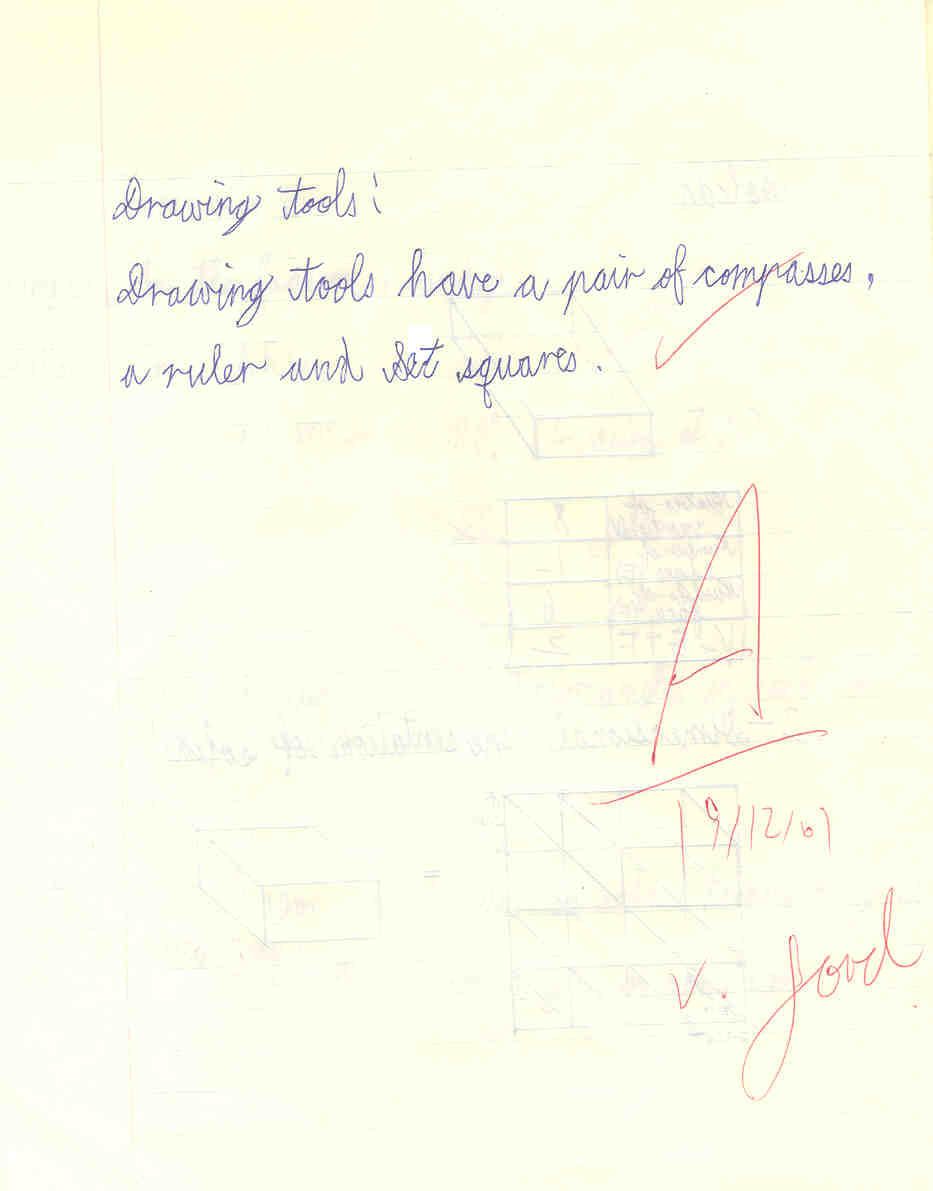 Drawing tools:
Drawing tools have a pair of compasses,
a ruler and Set squares.
A
19/12/01
V. Good